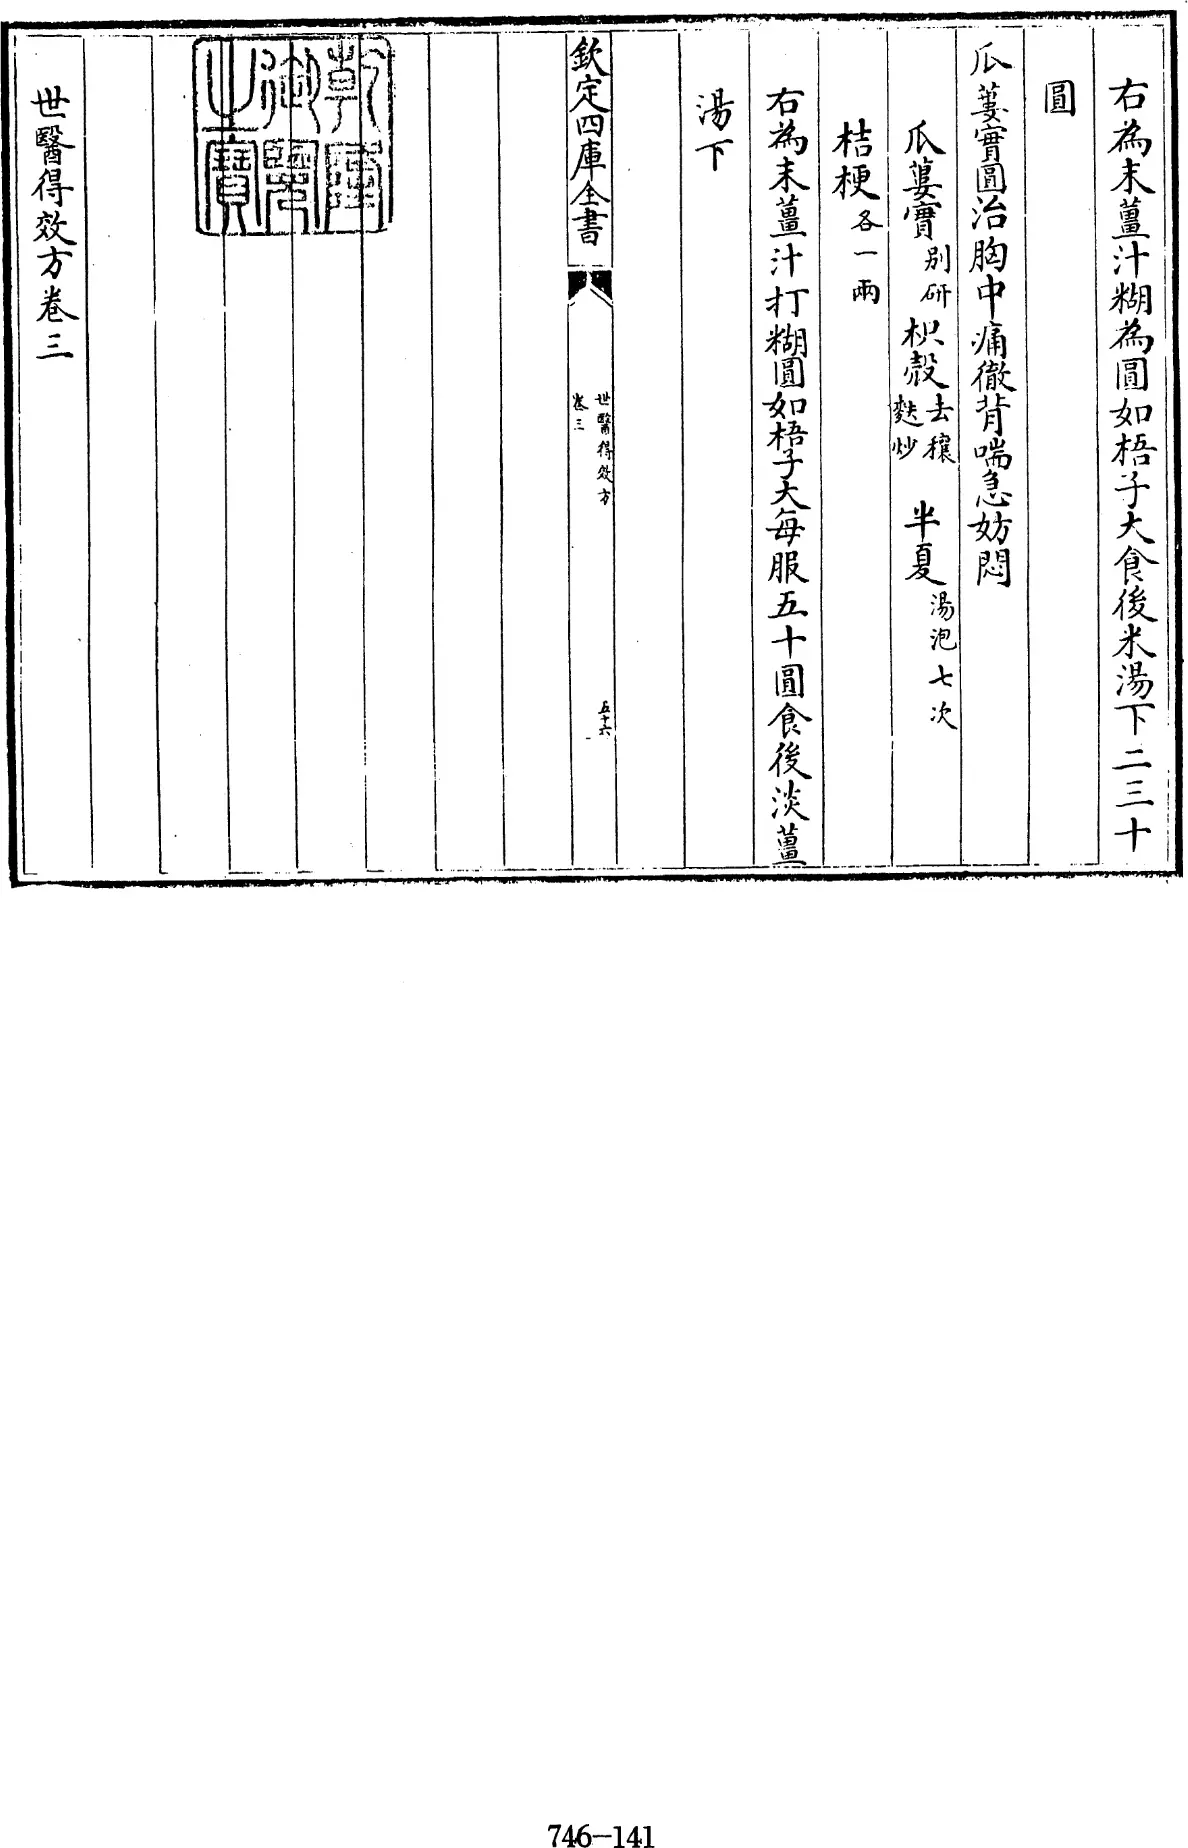 右為末薑汁糊為圓如梧子大食後米湯下二三十
圓
瓜蔞實圓治胸中痛徹背喘急妨悶
瓜蔞實別研枳殻去穰麩炒半夏湯泡七次
桔梗各一兩
右為末薑汁打糊圓如梧子大每服五十圓食後淡薑
湯下
欽定四庫全書
世醫得效方
卷三
五十六
乾隆
御覽
之寶
世醫得效方卷三
746-141